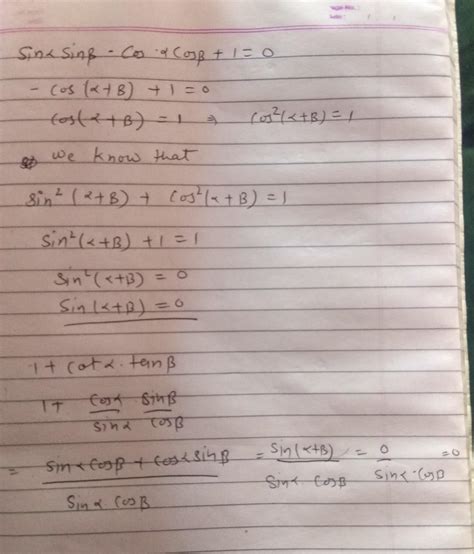 Sinα Sinβ - Cos α Cosβ + 1 = 0
- cos (α+β) + 1 = 0
Cos(α+β) = 1 ⇒ Cos²(α+β) = 1
we know that
Sin²(α+β) + Cos²(α+β) = 1
Sin²(α+β) + 1 = 1
Sin²(α+β) = 0
Sin(α+β) = 0
1 + cotα · tanβ
1 + Cosα/Sinα Sinβ/Cosβ
= Sinα Cosβ + Cosα Sinβ / Sinα Cosβ = Sin(α+β) / Sinα Cosβ = 0 / Sinα · Cosβ = 0